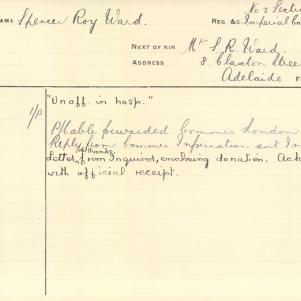 No 3 Section
NAME Spencer Roy Ward. REG. &c. Imperial Ca
NEXT OF KIN Mrs S. R. Ward.
ADDRESS 8. Claxton Stree
Adelaide
"Unoff. in hosp."
P/P P/Cable forwarded Commrs London
Reply from Commrs. Information sent In
Letter of thanks from Inquirer, enclosing donation. Ack
with official receipt.